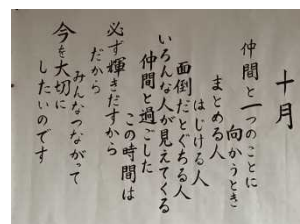 十月
仲間と一つのことに
向かうとき
まとめる人
はじける人
面倒だとぐちる人
いろんな人が見えてくる
仲間と過ごした
この時間は
必ず輝きだすから
だから
みんなつながって
今を大切に
したいのです